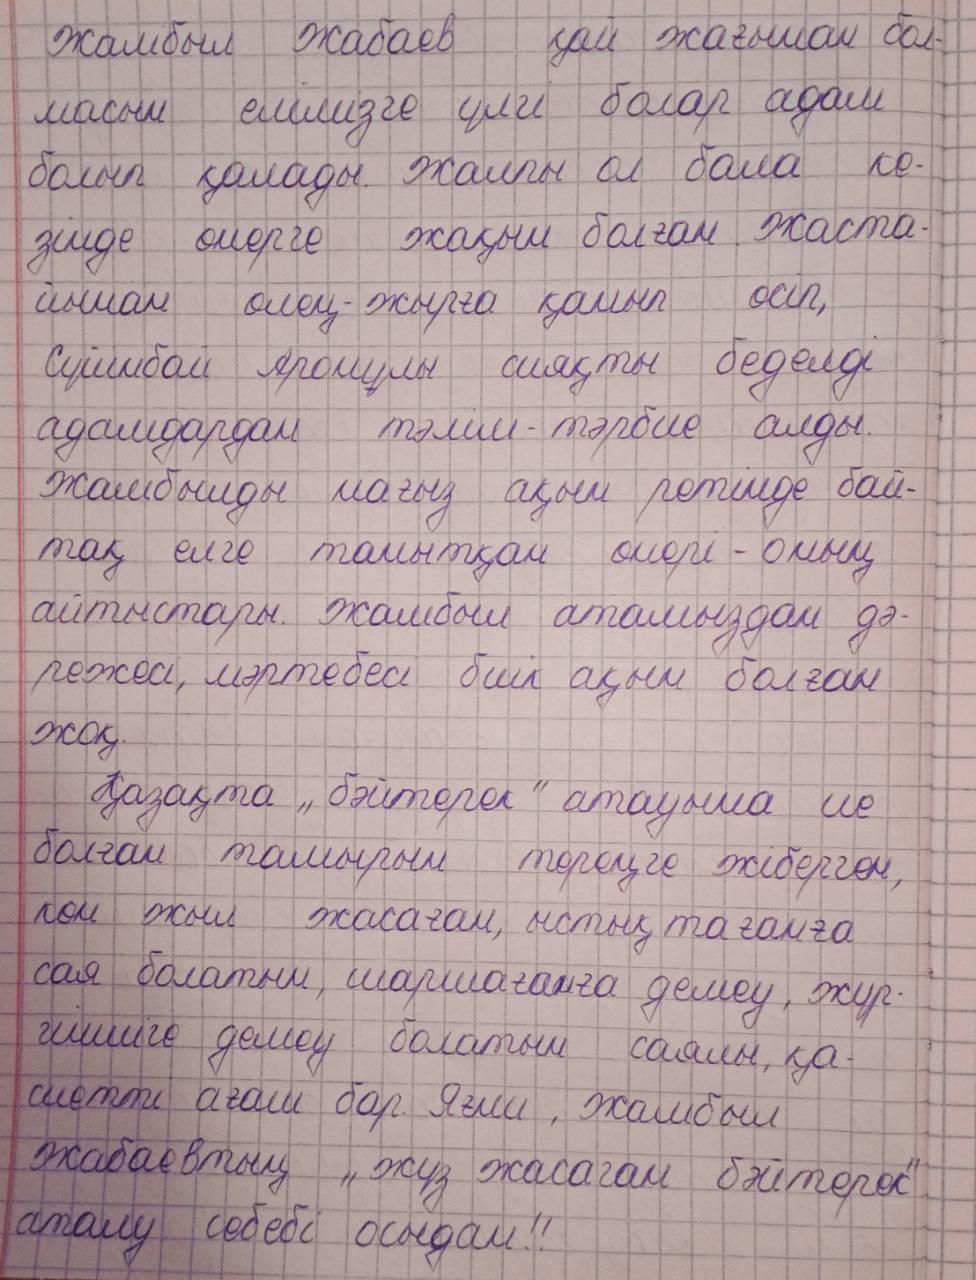 Жамбыл Жабаев қай жағынан бол-
масын елімізге үлгі болар адам
болып қалады. Жалпы ол бала ке-
зінде өнерге жақын болған. Жаста-
йынан өлең-жырға қанып өсіп,
Сүйінбай Аронұлы сияқты беделді
адамдардан тәлім-тәрбие алды.
Жамбылды нағыз ақын ретінде бай-
тақ елге танытқан өнері - оның
айтыстары. Жамбыл атамыздан дә-
режесі, мәртебесі биік ақын болған
жоқ.
Қазақта „бәйтерек“ атауына ие
болған тамырын тереңге жіберген,
көп жыл жасаған, ыстық тағанға
сая болатын, шаршағанға демеу, жүр-
гіншіге демеу болатын саялы, қа-
сиетті ағаш бар. Яғни, Жамбыл
Жабаевтың „жүз жасаган бәйтерек“
аталу себебі осыдан!!